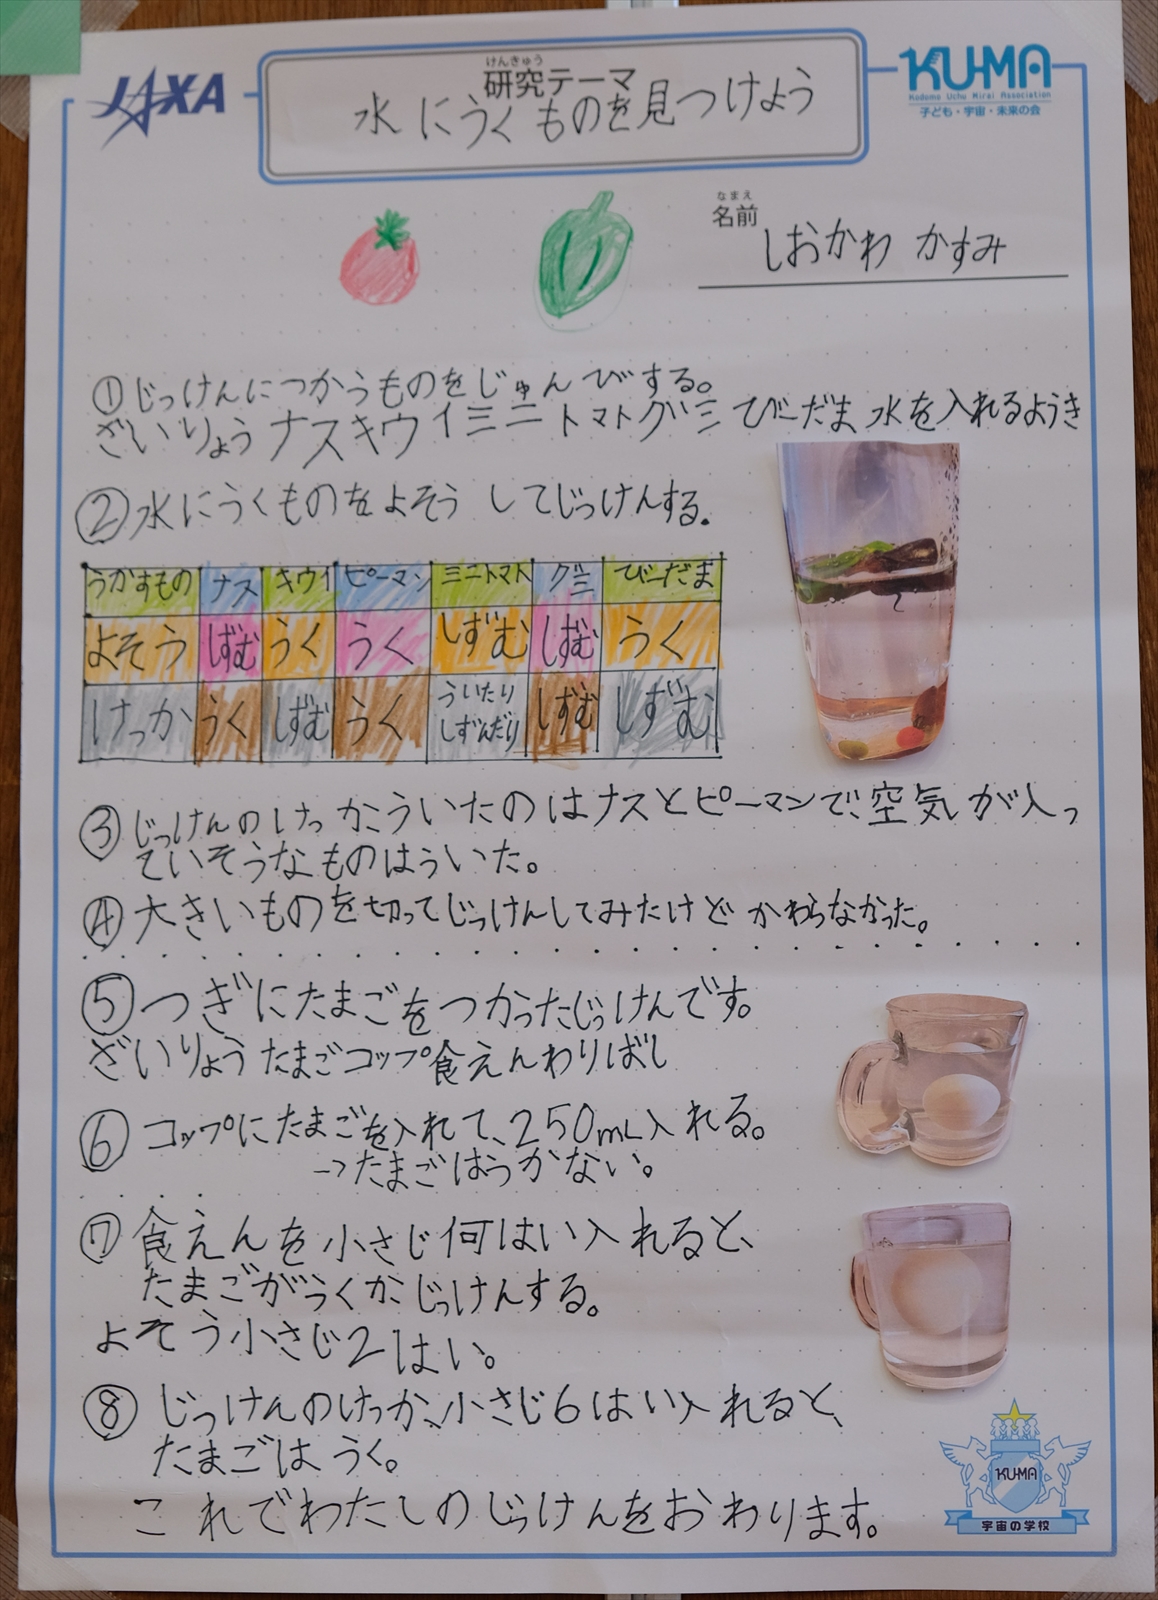 JAXA
けんきゅう
研究テーマ
水にうくものを見つけよう
KU-MA
Kodomo Uchu Mirai Association
子ども・宇宙・未来の会
なまえ
名前
しおかわ かすみ
①じっけんにつかうものをじゅんびする。
ざいりょうナスキウイミニトマトグミびーだま水を入れるようき
②水にうくものをよそうしてじっけんする.
うかすもの ナス キウイ ピーマン ミニトマト グミ びーだま
よそう しずむ うく うく しずむ しずむ うく
けっか うく しずむ うく ういたりしずんだり しずむ しずむ
③じっけんのけっか、ういたのはナスとピーマンで、空気が入っ
ていそうなものはういた。
④大きいものを切ってじっけんしてみたけどかわらなかった。
⑤つぎにたまごをつかったじっけんです。
ざいりょうたまごコップ食えんわりばし
⑥コップにたまごを入れて、250mL入れる。
→たまごはうかない。
⑦食えんを小さじ何はい入れると、
たまごがうくかじっけんする。
よそう小さじ2はい。
⑧じっけんのけっか、小さじ6はい入れると、
たまごはうく。
これでわたしのじっけんをおわります。
KU-MA
宇宙の学校